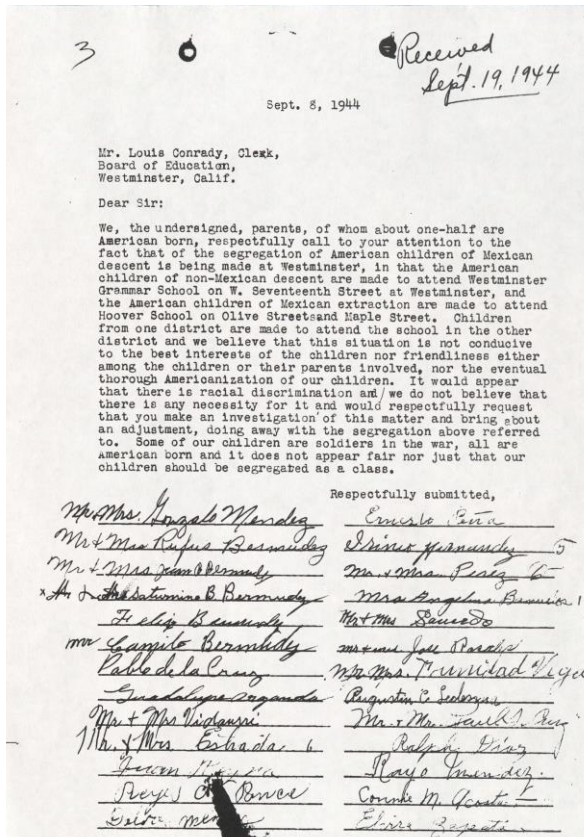 3
Received
Sept. 19, 1944
Sept. 8, 1944
Mr. Louis Conrady, Clerk,
Board of Education,
Westminster, Calif.
Dear Sir:
We, the undersigned, parents, of whom about one-half are
American born, respectfully call to your attention to the
fact that of the segregation of American children of Mexican
descent is being made at Westminster, in that the American
children of non-Mexican descent are made to attend Westminster
Grammar School on W. Seventeenth Street at Westminster, and
the American children of Mexican extraction are made to attend
Hoover School on Olive Streetsand Maple Street. Children
from one district are made to attend the school in the other
district and we believe that this situation is not conducive
to the best interests of the children nor friendliness either
among the children or their parents involved, nor the eventual
thorough Americanization of our children. It would appear
that there is racial discrimination and/we do not believe that
there is any necessity for it and would respectfully request
that you make an investigation of this matter and bring about
an adjustment, doing away with the segregation above referred
to. Some of our children are soldiers in the war, all are
American born and it does not appear fair nor just that our
children should be segregated as a class.
Respectfully submitted,
Mr. & Mrs. Gonzalo Mendez
Ernesto Peña
Mr & Mrs Rufus Bermudez
5
Mr & Mrs Juan Bermudez
Mr. & Mrs. Perez
Saturnino B. Bermudez
Mrs Angelina
Felix Bermudez
Mr & Mrs Saucedo
Mr Camilo Bermudez
Jose
Pablo de la Cruz
Mr. Mrs. Trinidad
Guadalupe
Augustin C.
Mr. & Mrs Vidaurri
Mr. & Mrs. Estrada 6
Ralph Diaz
Juan
Rayo Mendez.
Reyes Ponce
Connie M. Acosta
Elvira